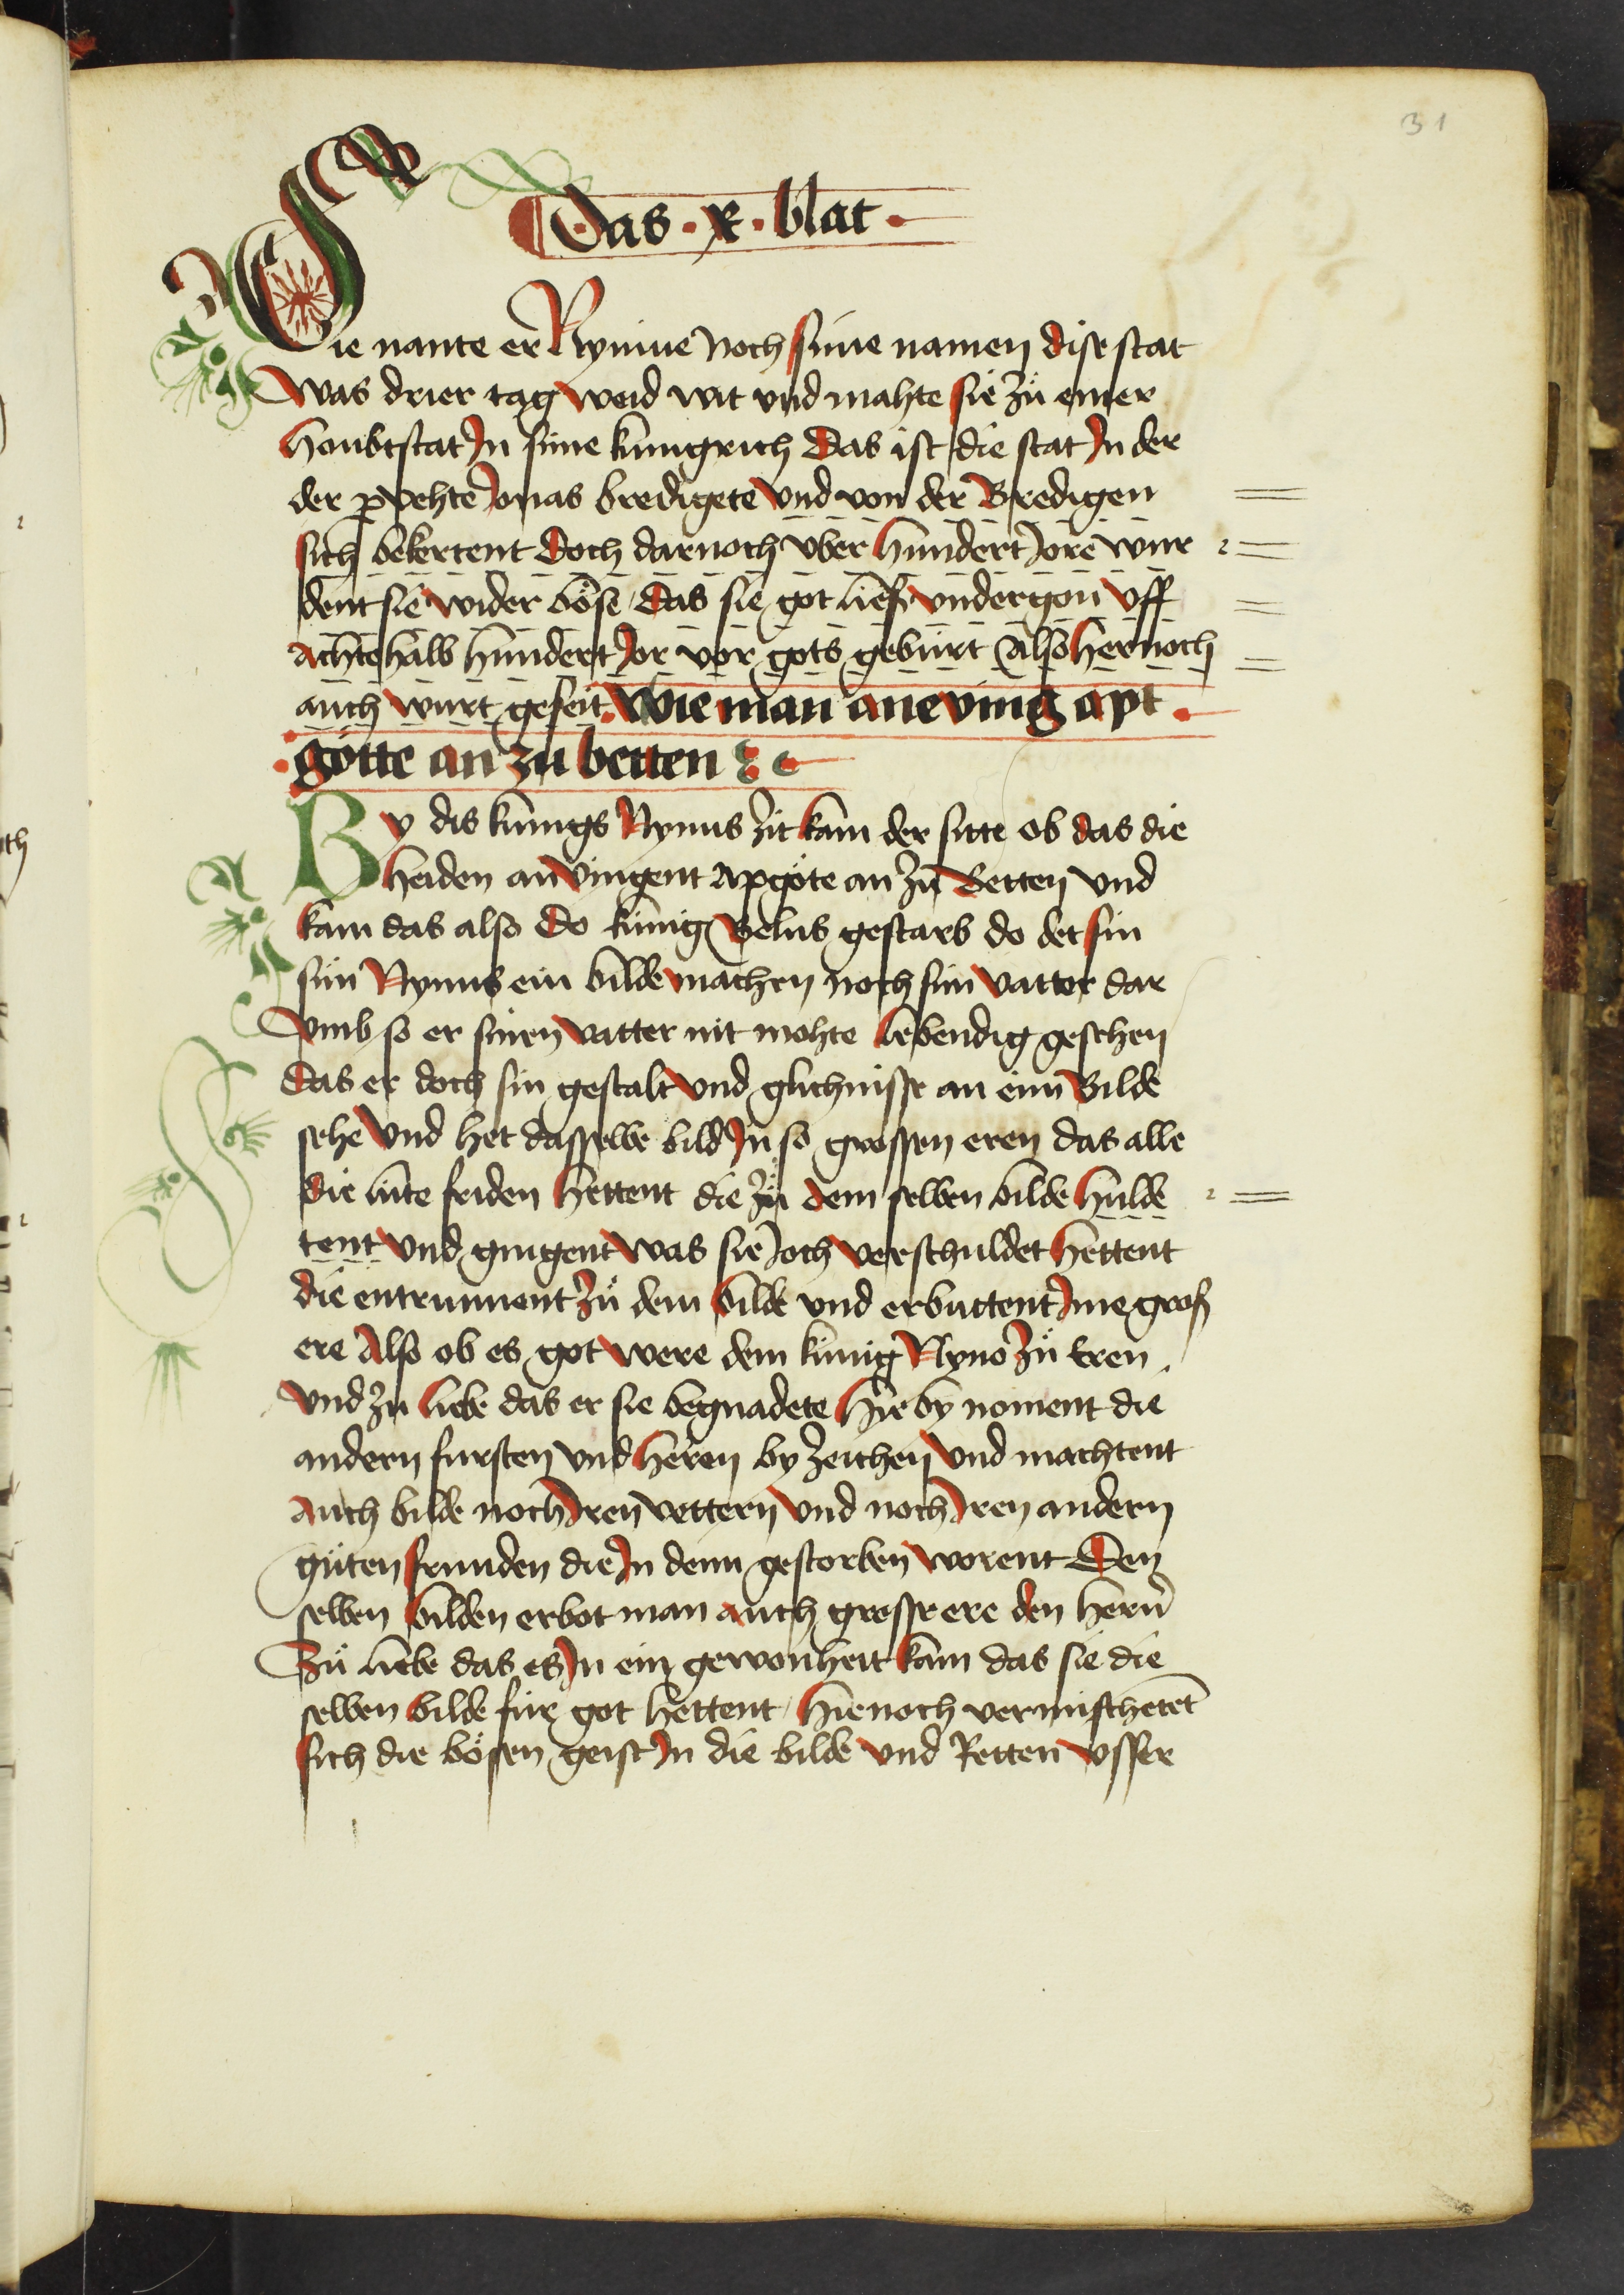 31
Das · x · blat ·
Sie nante er Nynive noch sime namen dise stat
was drier tag weid wit vnd mahte sie zů einer
houbtstat In sime kungrich Das ist die stat In der
der ꝓpehte Jonas bredigete vnd von der Bredigen
sich bekertent Doch darnoch vber hundert Jore wur
dent sie wider böse das sie got ließ vndergon vff
achtehalb hundert Jor vor gots geburt Also hernoch
auch wurt geseit. wie man ane ving apt
götte an zu betten
By dis kunigs Nynus zit kam der sitte ob das die
heiden anvingent apgöte an zů Betten vnd
kam das also Do kunig Belus gestarb do det sin
sün Nynus ein bilde machen noch sim vatter dar
vmb so er sinen vatter nit mohte lebendig gesehen
das er doch sin gestalt vnd glichnisse an eim Bilde
sehe vnd het dasselbe bild In so grossen eren das alle
die lüte friden hettent die zů dem selben bilde hulde
tent vnd gingent was sie Joch verschuldet hettent
die entrunnent zů dem bilde vnd erbuttent Ime groß
ere Also ob es got were dem kunig Nyno zů Eren
vnd zu liebe das er sie begnadete Hie by noment die
andern fursten vnd heren by zeichen vnd machtent
auch bilde noch Iren vettern vnd noch Iren andern
güten frunden die In denn gestorben worent Den
selben bilden erbot man auch grosse ere den hern
Zů liebe das es In ein gewonheit kam das sie die
selben bilde für got hettent Hienoch vermischetet
sich die bösen geist In die bilde vnd Retten vsser